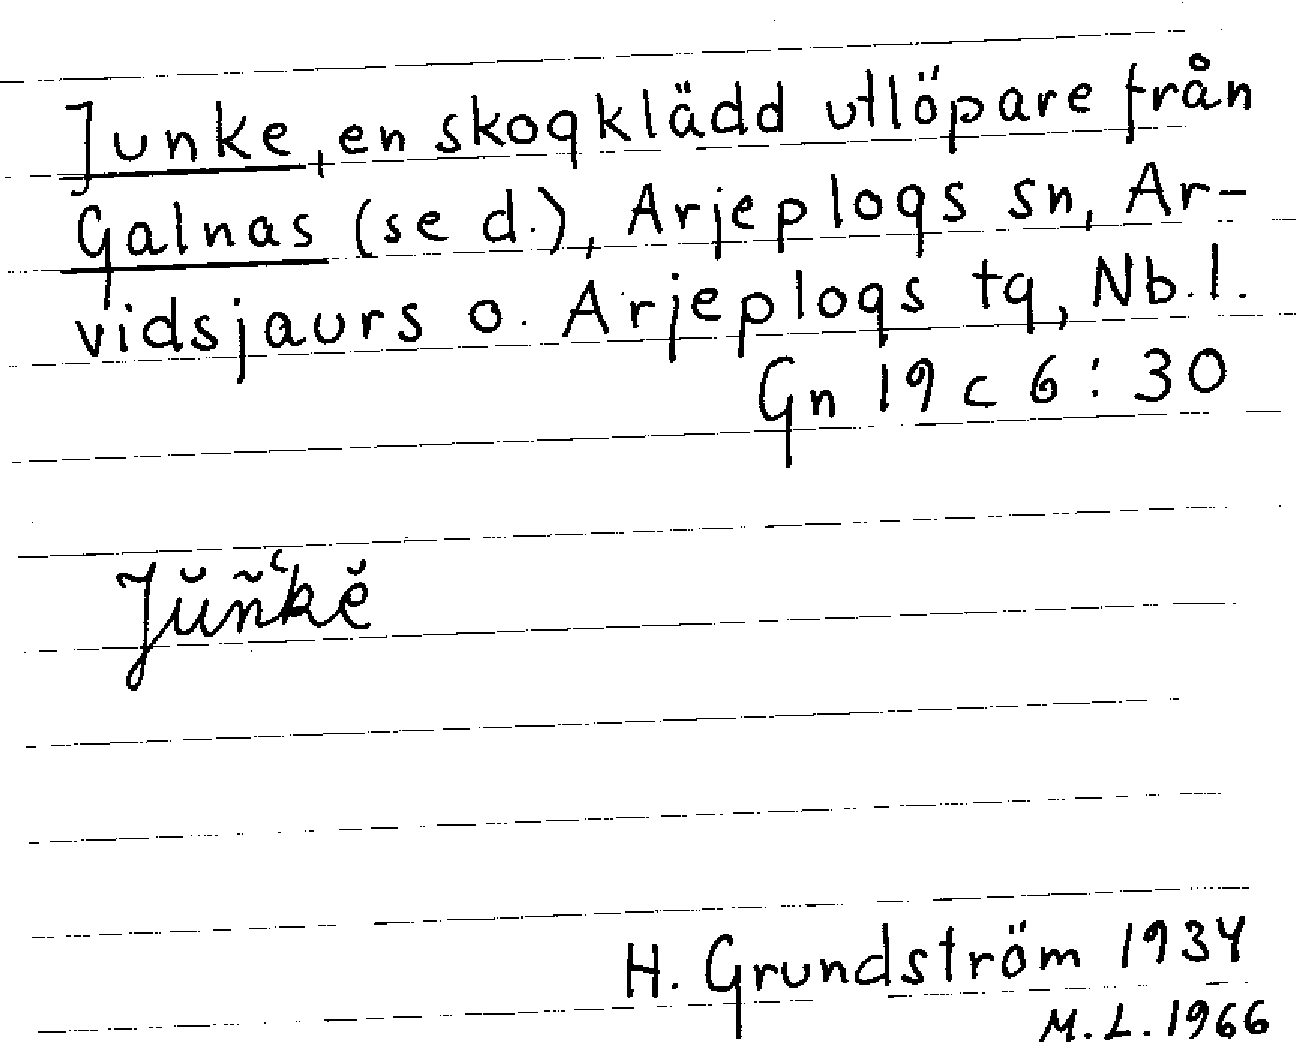 Junke, en skogklädd utlöpare från
Galnas (se d.), Arjeplogs sn, Ar-
vidsjaurs o. Arjeplogs tg, Nb.l.
Gn 19 c 6:30
Jŭñ‘kĕ
H. Grundström 1934
M.L. 1966